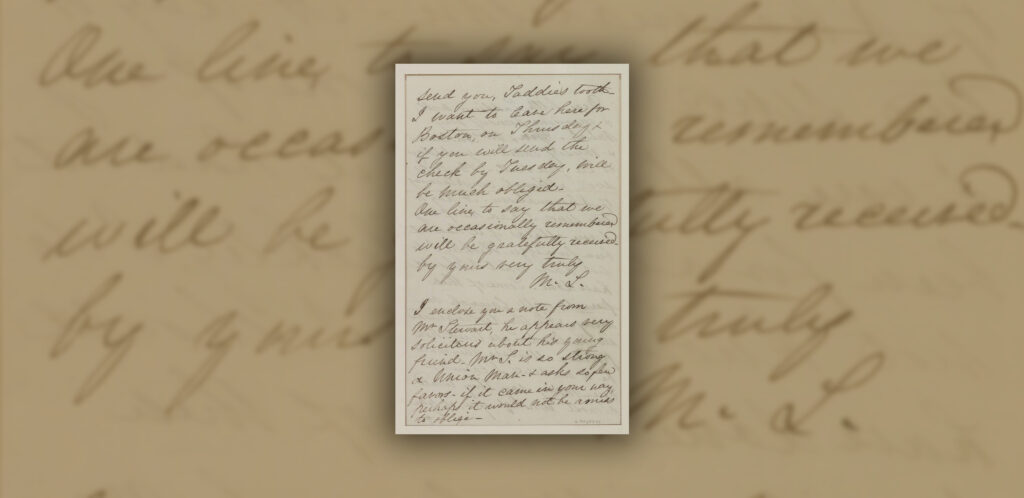 send you, Taddie's tooth
I want to leave here for
Boston, on Thursday &
if you will send the
check by Tuesday, will
be much obliged-
One line, to say that we
are occasionally remembered
will be gratefully received-
by yours very truly
M. L.
I enclose you a note from
Mr Stewart, he appears very
solicitous about his young
friend- Mr S. is so strong
a Union Man- & asks so few
favors- if it came in your way
perhaps it would not be amiss
to oblige-